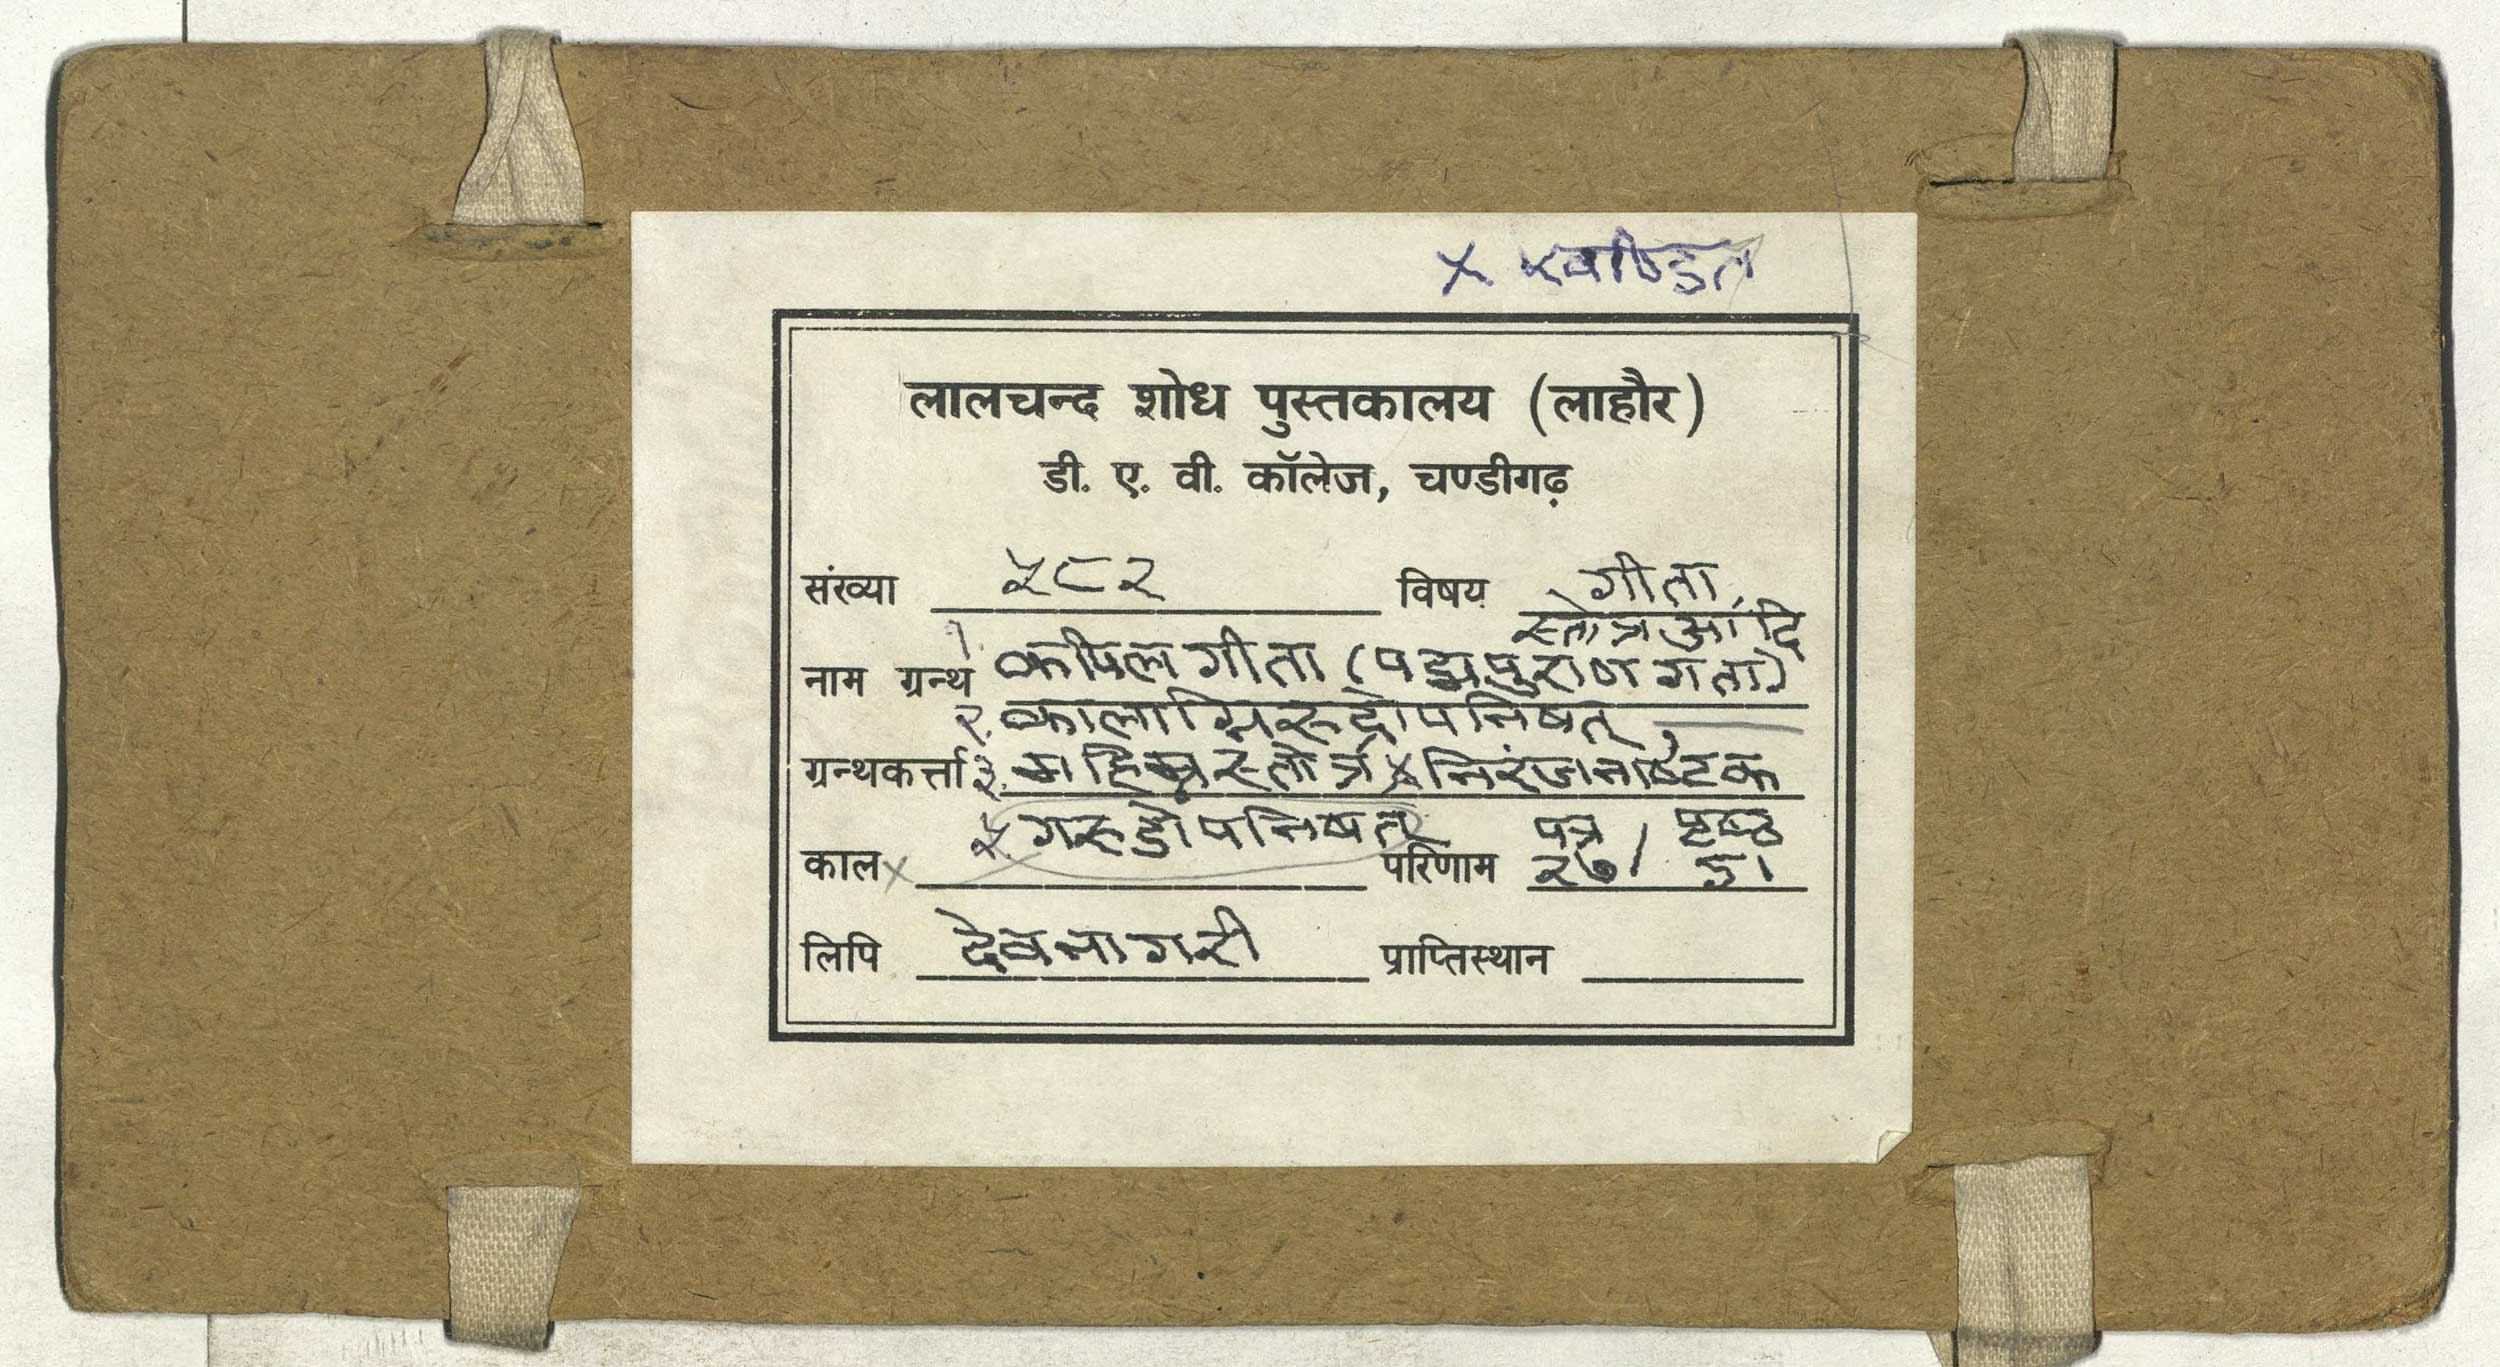 × खण्डित
लालचन्द शोध पुस्तकालय (लाहौर)
डी. ए. वी. कॉलेज, चण्डीगढ़
संख्या ५८२ विषय गीता,
स्तोत्र आदि
नाम ग्रन्थ १. कपिल गीता (पद्मपुराण गता)
२. कालाग्निरुद्रोपनिषत्
ग्रन्थकर्त्ता ३. महिम्न स्तोत्र ४ निरंजनाष्टक
५. गरुडोपनिषत् पत्र / पृष्ठ
काल × परिणाम २७/ ५१
लिपि देवनागरी प्राप्तिस्थान